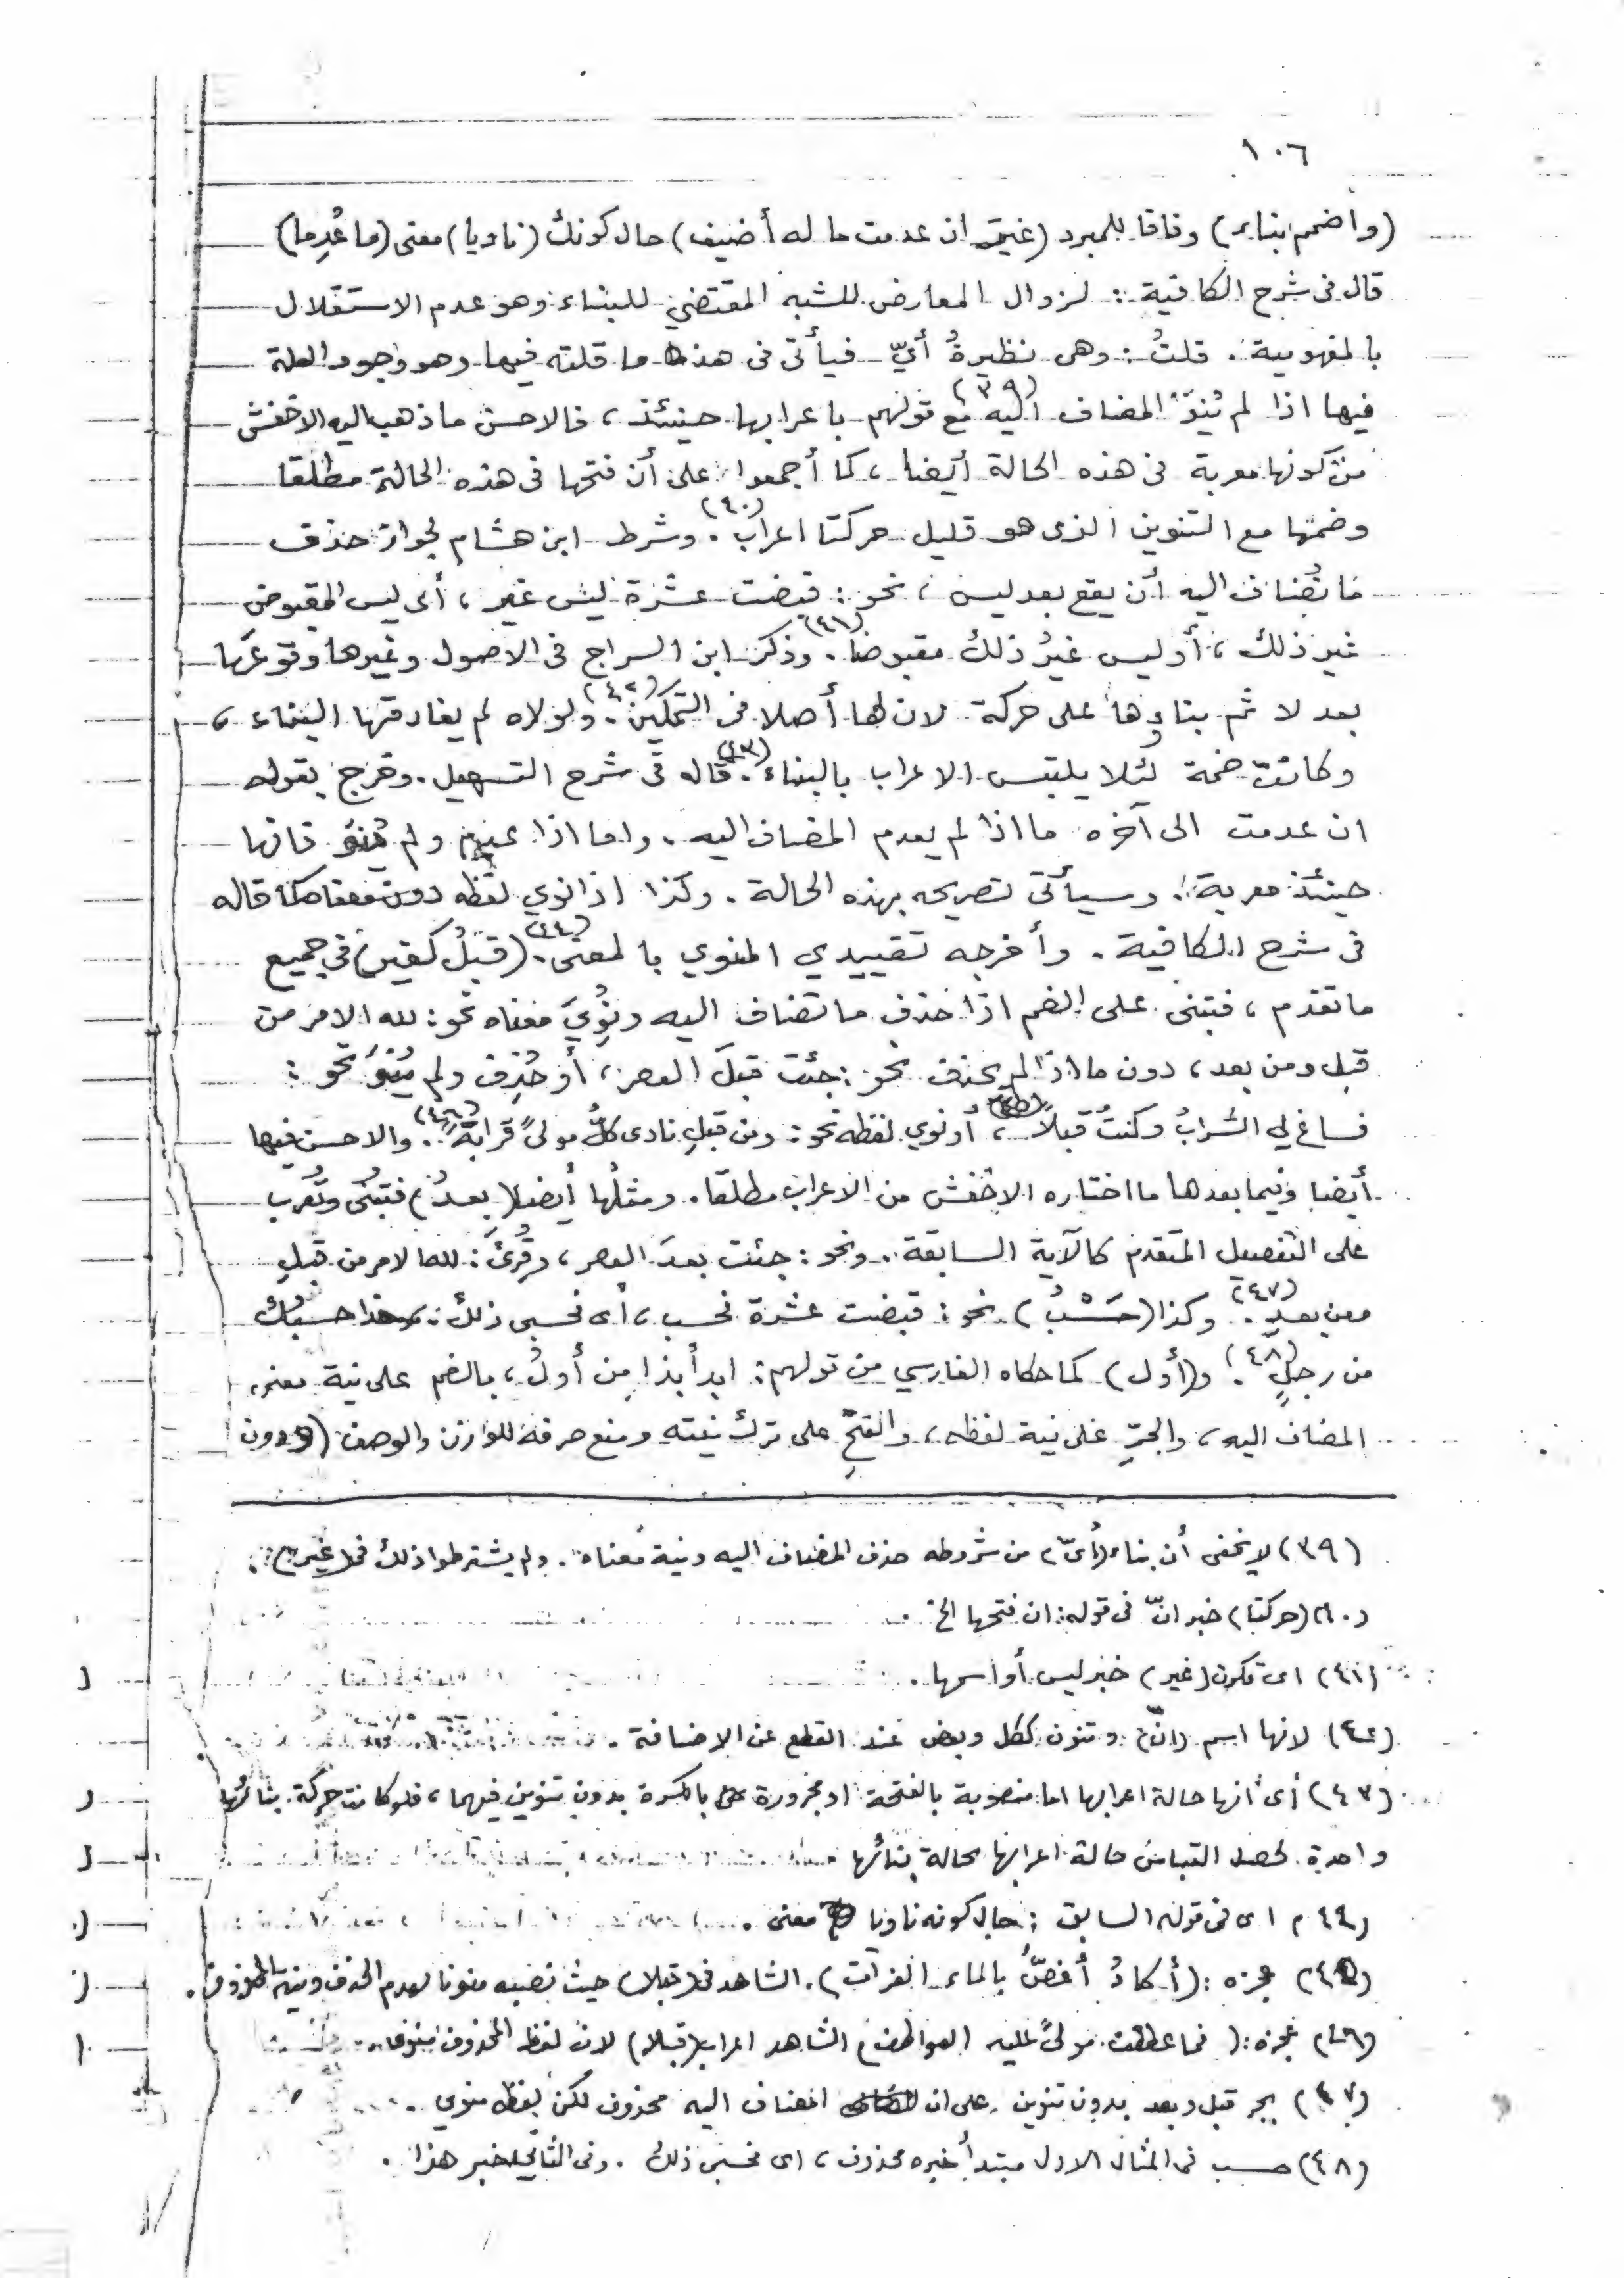 ١٠٦
(واضمم بناء) وفاقا للمبرد (غير ان عدمت ما له أضيف) حال كونك (ناويا) معنى (ما عُدِما)
قال فى شرح الكافية : لزوال المعارض للشبه المقتضي للبناء وهو عدم الاستقلال
بالمفهومية . قلتُ : وهى نظيرةُ أيّ فيأتى فى هذه ما قلته فيها وهو وجود العلة
فيها اذا لم يُنوَ المضاف اليه (٣٩) مع قولهم باعرابها حينئذ ، فالاحسن ما ذهب اليه الاخفش
من كونها معربة فى هذه الحالة أيضا ، كما أجمعوا على أن فتحها فى هذه الحالة مطلقا
وضمتها مع التنوين الذى هو قليل حركتا اعراب (٤٠) . وشرط ابن هشام لجواز حذف
ما تُضاف اليه أن يقع بعد ليس ، نحو : قبضت عشرة ليس غير ، أى ليس المقبوض
غير ذلك ، أو ليس غيرُ ذلك مقبوضا (٤١) . وذكر ابن السراج فى الاصول وغيرها وقوعَها
بعد لا ثم بناؤها على حركة لان لها أصلا فى التمكين (٤٢) . ولولاه لم يفارقها البناء ،
وكانت ضمة لئلا يلتبس الاعراب بالبناء (٤٣) . قاله فى شرح التسهيل . وخرج بقوله
ان عدمت الى آخره ما اذا لم يعدم المضاف اليه . واما اذا عدم ولم يُنوَ فانها
حينئذ معربة . وسيأتى تصريحه بهذه الحالة . وكذا اذا نوي لفظه دون معناه كما قاله
فى شرح الكافية . وأخرجه تقييدي المنوي بالمعنى (٤٤) . (قبلُ كغير) فى جميع
ما تقدم ، فتبنى على الضم اذا حذف ما تضاف اليه ونُوِيَ معناه نحو : لله الامر من
قبل ومن بعد ، دون ما اذا لم يحذف نحو : جئت قبلَ العصر ، أو حُذِف ولم يُنوَ نحو :
فساغ لي الشرابُ وكنتُ قبلاً (٤٥) ، أو نوي لفظه نحو : ومن قبلِ نادى كلُّ مولىً قرابةً (٤٦) . والاحسن فيها
أيضا وفيما بعدها ما اختاره الاخفش من الاعراب مطلقا . ومثلُها أيضا (بعدُ) فتبنى وتُعرب
على التفصيل المتقدم كالآية السابقة . ونحو : جئت بعدَ العصر ، وقُرِئَ : لله الامر من قبلِ
ومن بعدِ (٤٧) . وكذا (حَسْبُ) نحو : قبضت عشرة فحسب ، أى فحسبى ذلك ، وهذا حسبُك
من رجلٍ (٤٨) . و(أول) كما حكاه الفارسي من قولهم : ابدأ بذا مِن أولُ ، بالضم على نية معنى
المضاف اليه ، والجرِّ على نية لفظه ، والفتحِ على ترك نيته ومنع صرفه للوزن والوصف (ودون
(٣٩) لا يخفى أن بناء (أىّ) من شروطه حذف المضاف اليه ونية معناه . ولم يشترطوا ذلك فى (غير) .
(٤٠) (حركتا) خبر انّ فى قوله : ان فتحها الخ .
(٤١) اى تكون (غير) خبر ليس أو اسمها .
(٤٢) لانها اسم (انّ) وتنون ككل وبعض عند القطع عن الاضافة .
(٤٣) أى أنها حالة اعرابها اما منصوبة بالفتحة او مجرورة بالكسرة بدون تنوين فيهما ، فلو كانت حركة بنائها
واحدة لحصل التباس حالة اعرابها بحالة بنائها
(٤٤) اى فى قوله السابق : حال كونه ناويا معنى .
(٤٥) عجزه : (أكادُ أغصُّ بالماء الفرات) . الشاهد فى (قبلا) حيث نصبه منونا لعدم الحذف ونية المحذوف .
(٤٦) عجزه : ( فما عطفت مولىً عليه العواطف) الشاهد اعراب (قبلا) لان لفظ المحذوف منوى .
(٤٧) بجر قبل وبعد بدون تنوين على ان المضاف اليه محذوف لكن لفظه منوي .
(٤٨) حسب فى المثال الاول مبتدأ خبره محذوف ، اى فحسبى ذلك . وفى الثانى خبر هذا .